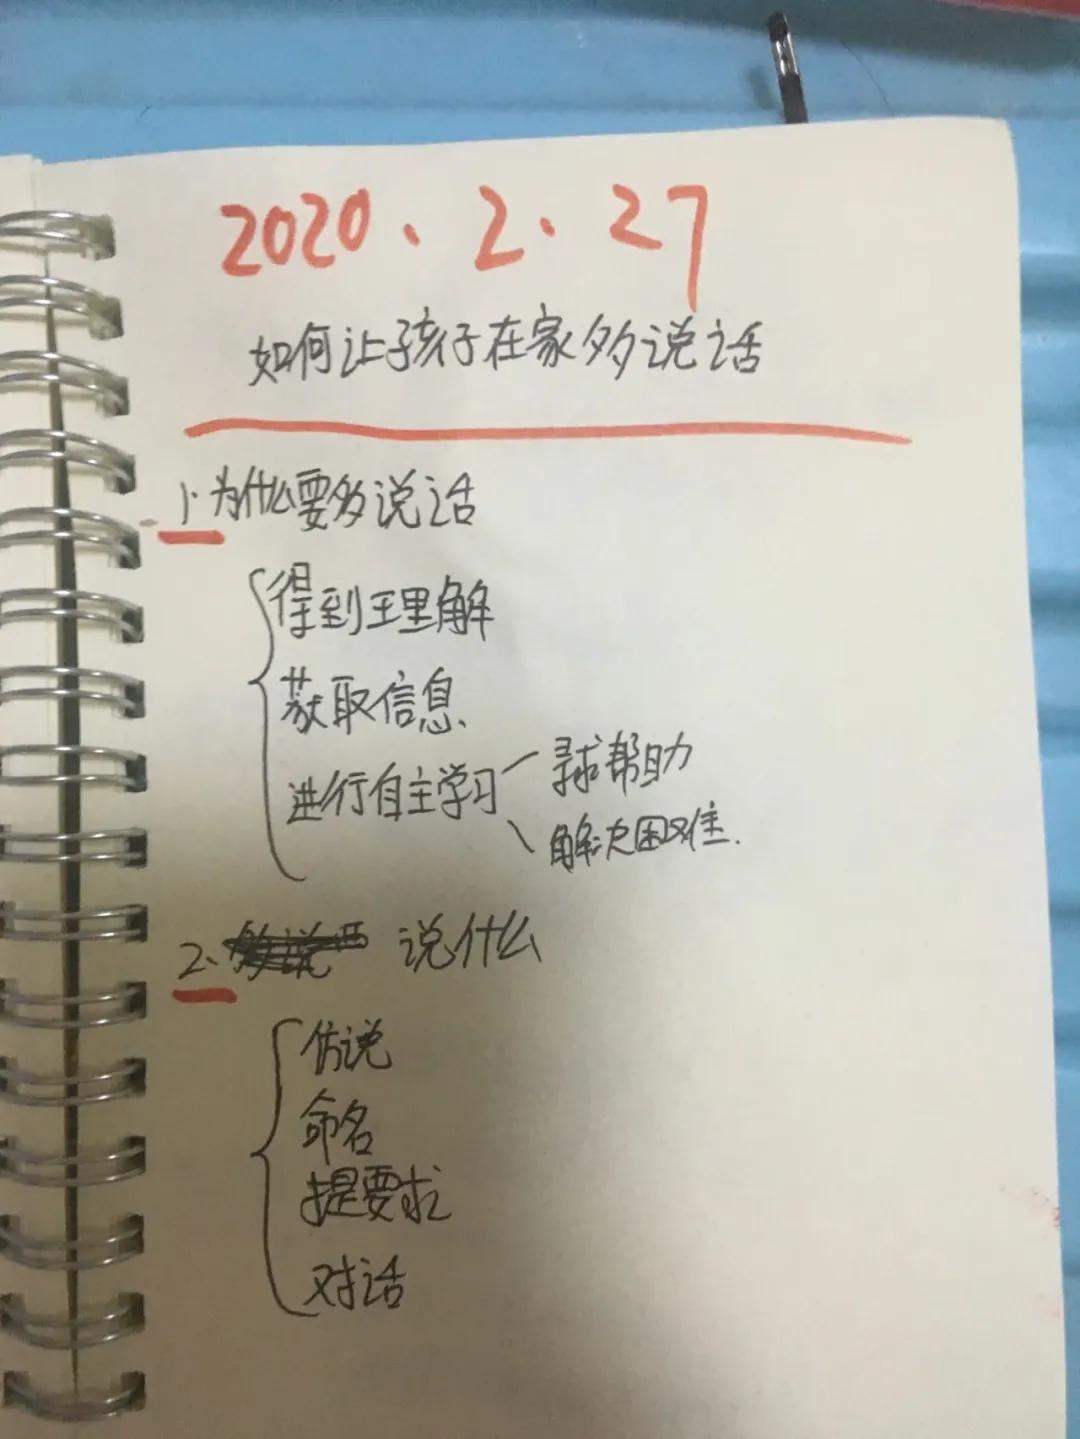 2020.2.27
如何让孩子在家多说话
1.为什么要多说话
得到理解
获取信息
进行自主学习
寻求帮助
解决困难.
2. 说什么
仿说
命名
提要求
对话